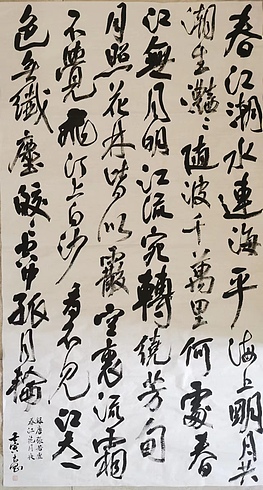 春江潮水連海平海上明月共
潮生灩〻隨波千萬里何處春
江無月明江流宛轉繞芳甸
月照花林皆似霰空裏流霜
不覺飛汀上白沙看不見江天一
色無纖塵皎〻空中孤月輪
錄唐張若虛
春江花月夜